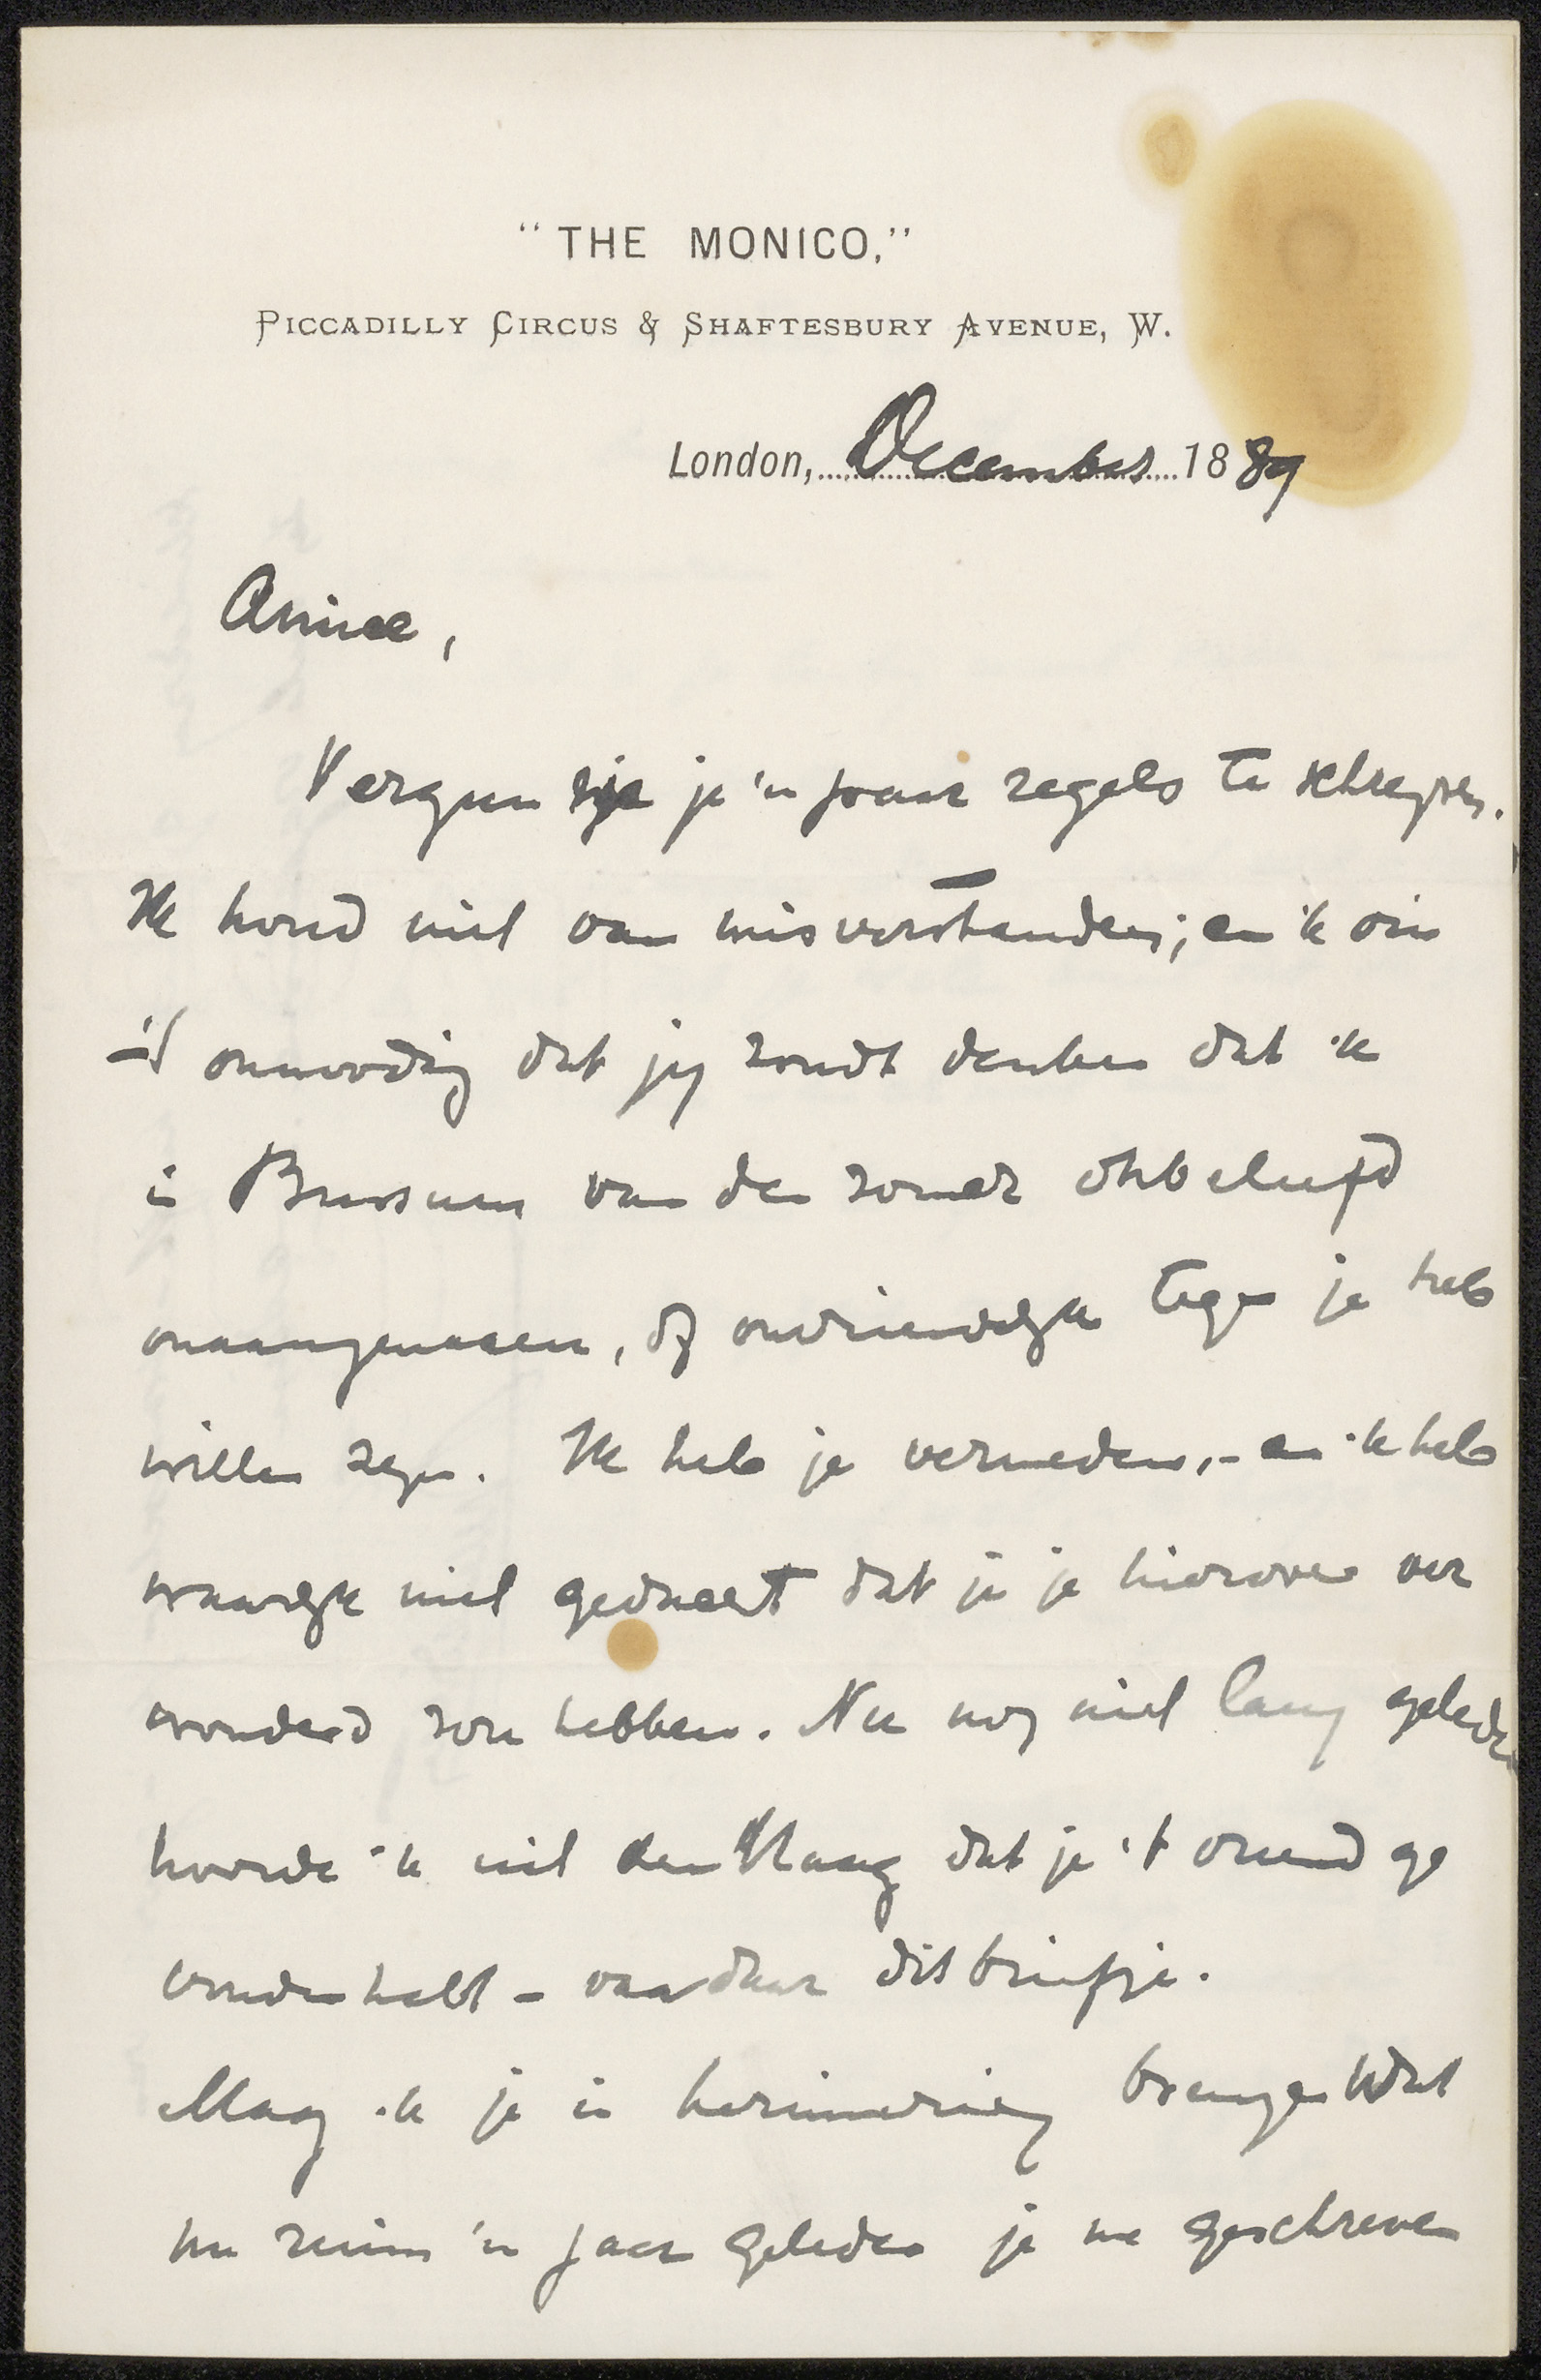 "THE MONICO,"
PICCADILLY CIRCUS & SHAFTESBURY AVENUE, W.
London, December 1889
Amice,
Vergun je 'n paar regels te schrijven.
Ik houd niet van misverstanden; en ik vin
't onnoodig dat jij zoudt denken dat ik
in Bussum van den zomer onbeleefd
onaangenaam, of onvriendelijk tegen je heb
willen zijn. Ik heb je vermeden, - en ik heb
waarlijk niet gedacht dat je je hierover ver
wonderd zou hebben. Nu nog niet lang geleden
hoorde ik uit den Haag dat je 't vreemd ge
vonden hebt - vandaar dit briefje.
Mag ik je in herinnering brengen wat
nu ruim 'n jaar geleden je me geschreven